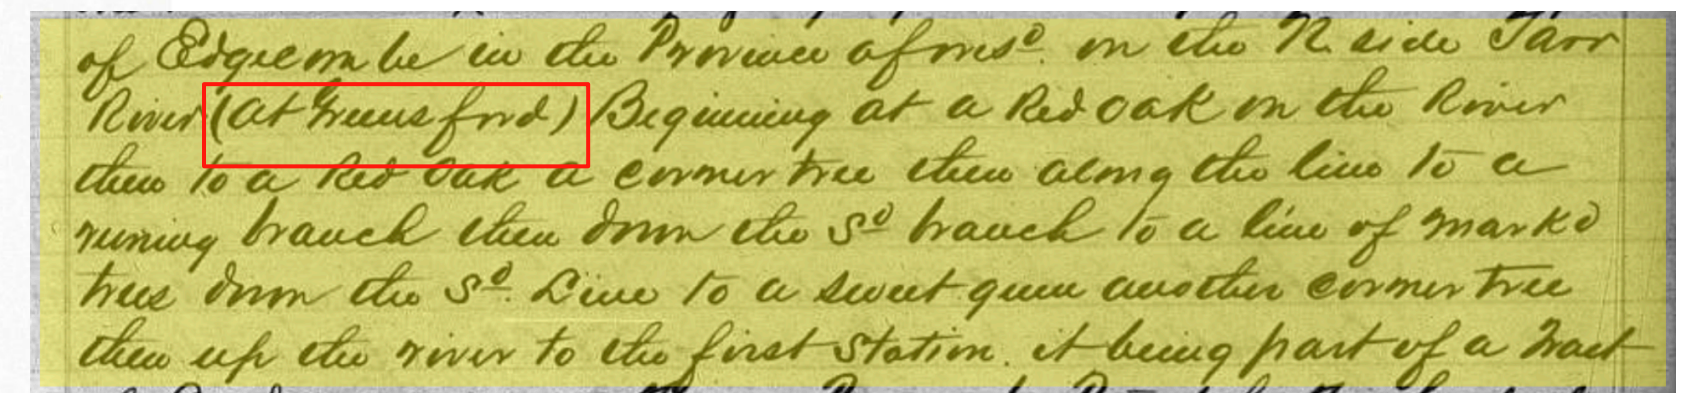 of Edgecombe in the Province afores<sup>d</sup>. on the N. side Tarr
River (at Greens ford) Beginning at a Red Oak on the River
then to a Red Oak a corner tree then along the line to a
runing branch then down the S<sup>d</sup> branch to a line of mark<sup>d</sup>
trees down the S<sup>d</sup>. Line to a sweet gum another corner tree
then up the river to the first Station. it being part of a Tract